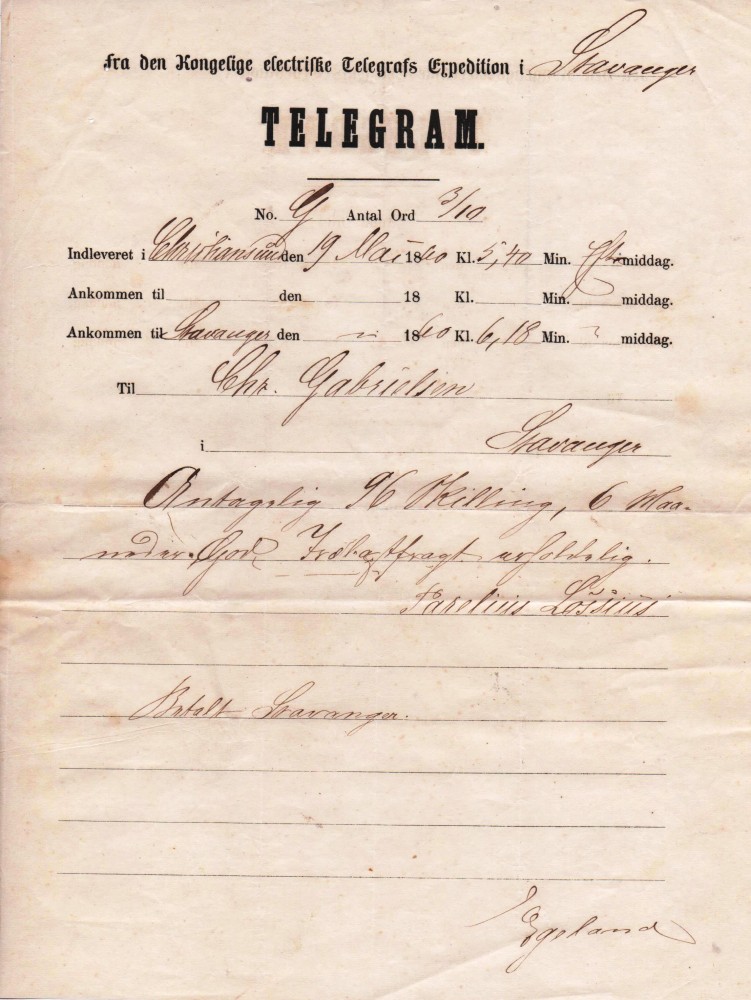 Fra den Kongelige electriske Telegrafs Expedition i Stavanger
TELEGRAM.
No. G Antal Ord 3/10
Indleveret i Christiansund den 19 Mai 1860 Kl. 5,40 Min. Eftermiddag.
Ankommen til den 18 Kl. Min. middag.
Ankommen til Stavanger den — 1860 Kl. 6,18 Min. middag.
Til Chr. Gabrielsen
i Stavanger
Antagelig 96 Skilling, 6 Maa-
neder. God Trælastfragt erholdelig.
Parelius Lossius
Betalt Stavanger.
Egeland